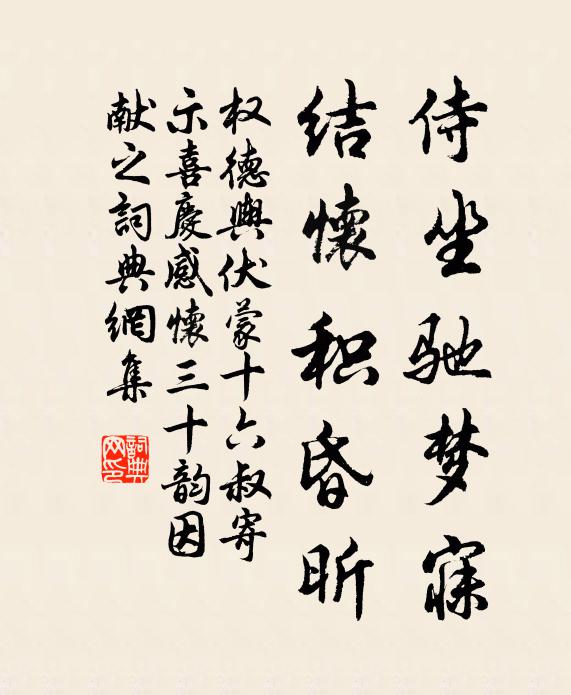 侍坐驰梦寐
结怀积昏昕
权德舆伏蒙十六叔寄
示喜慶感懷三十韵因
献之詞典網集
詞典网印